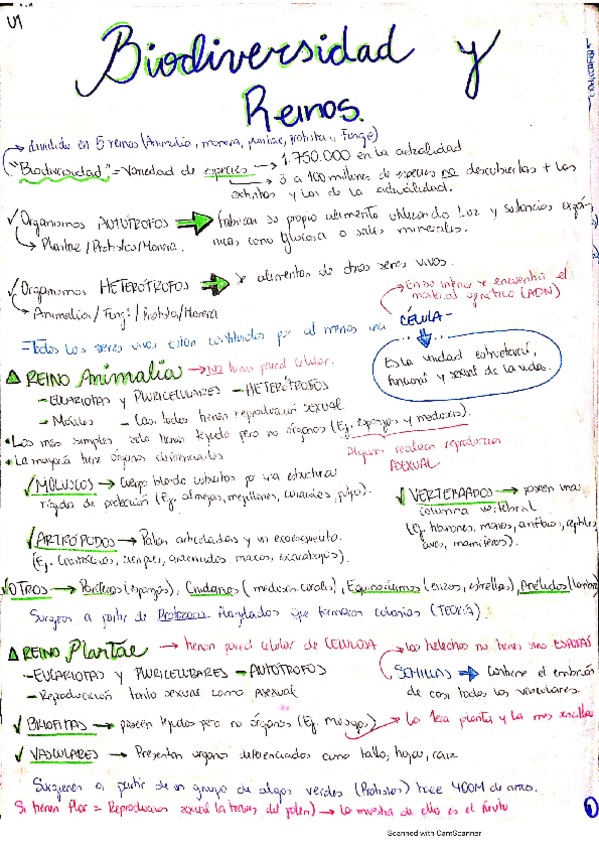 U1
Biodiversidad y
Reinos.
dividido en 5 reinos (Animalia, monera, plantae, protista y Fungi)
"Biodiversidad" = Variedad de especies → 1.750.000 en la actualidad
→ 3 a 100 millones de especies no descubiertas + las
extintas y las de la actualidad.
✓ Organismos AUTÓTROFOS → Fabrican su propio alimento utilizando luz y sustancias
→ Plantae / Protistas / Monera. como glucosa o sales minerales.
✓ Organismos HETERÓTROFOS → alimentan de otros seres vivos.
→ Animalia / Fungi / Protista / Monera
→ En su interior se encuentra el
material genético (ADN)
= Todos los seres vivos están constituidos por al menos una CÉLULA -
Es la unidad estructural,
funcional y de la vida.
REINO Animalia → NO tienen pared celular.
- EUCARIOTAS y PLURICELULARES - HETERÓTROFOS
- Móviles - Casi todos tienen reproducción sexual
• Los más simples solo tienen tejido pero no órganos (Eg. esponjas y medusas).
Algunos realizan reproducción
ASEXUAL
• La mayoría tiene órganos diferenciados
✓ MOLUSCOS → Cuerpo blando cubiertos por una estructura
rígida de protección (Eg. almejas, mejillones, pulpo).
✓ VERTEBRADOS → poseen una
columna vertebral
(Eg. anfibios, reptiles
aves, mamíferos).
✓ ARTRÓPODOS → Patas articuladas y un exoesqueleto.
(Eg. ciempiés, escarabajos).
✓ OTROS → Poríferos (esponjas), Cnidarios (medusas corales), Equinodermos (erizos, estrellas), Anélidos
Surgieron a partir de Protozoos flagelados que formaron colonias (TEORÍA).
REINO Plantae → tienen pared celular de CELULOSA
→ Los helechos no tienen sino ESPORAS
- EUCARIOTAS y PLURICELULARES - AUTÓTROFOS
- Reproducción tanto sexual como asexual
SEMILLAS → Contiene el embrión
de casi todos los vasculares.
✓ BRIOFITAS → poseen tejidos pero no órganos (Eg. Musgos) → La 1era planta y la más sencilla
✓ VASCULARES → Presentan órganos diferenciados como tallo, hojas, raíz
Surgieron a partir de un grupo de algas verdes (Protistas) hace 400M de años.
Si tienen Flor = Reproducción sexual (a través del polen) → la muestra de ello es el fruto
1
Scanned with CamScanner